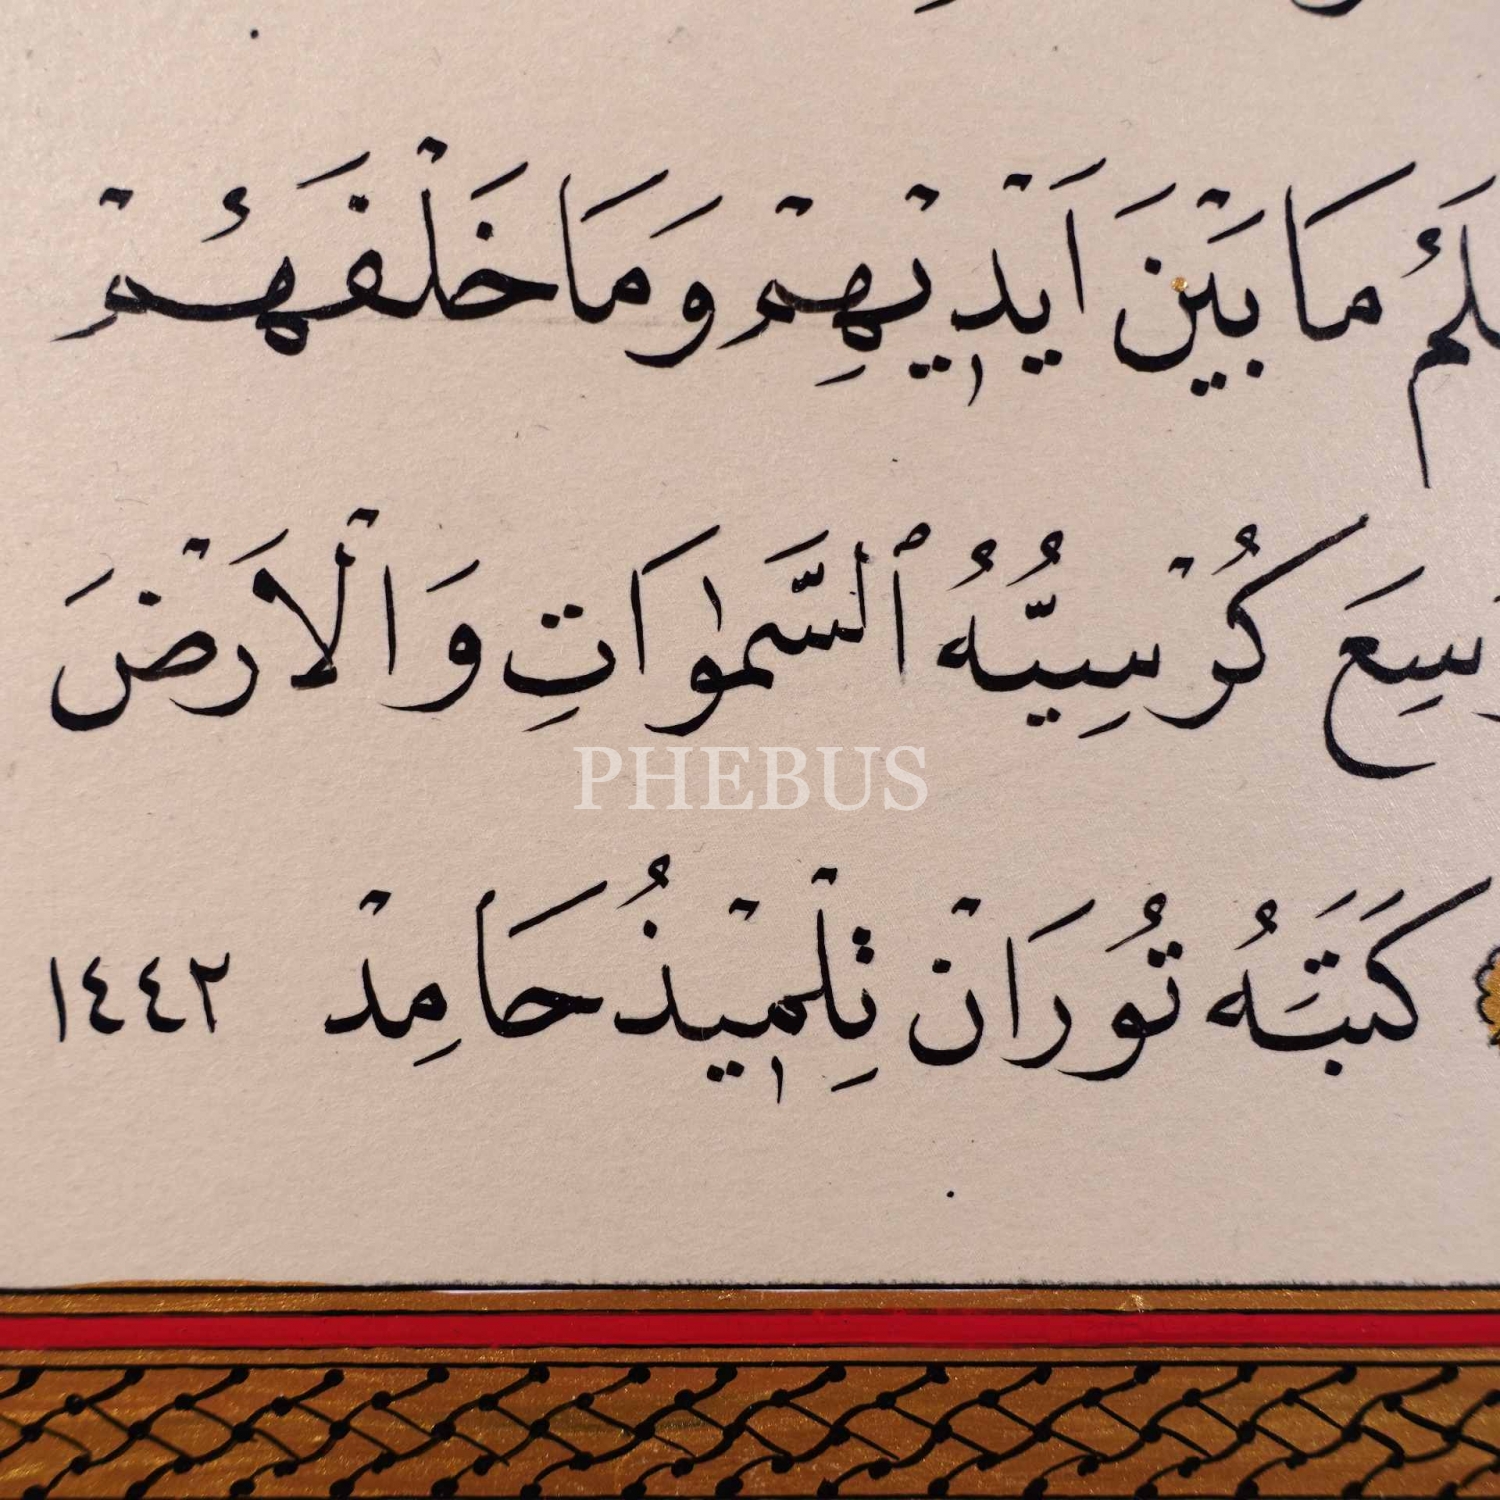 يَعْلَمُ مَا بَيْنَ اَيْدٖيهِمْ وَمَا خَلْفَهُمْ
وَسِعَ كُرْسِيُّهُ ٱلسَّمٰوَاتِ وَالْاَرْضَ
PHEBUS
كَتَبَهُ تُورَانْ تِلْمٖيذُ حَامِدْ ١٤٤٢